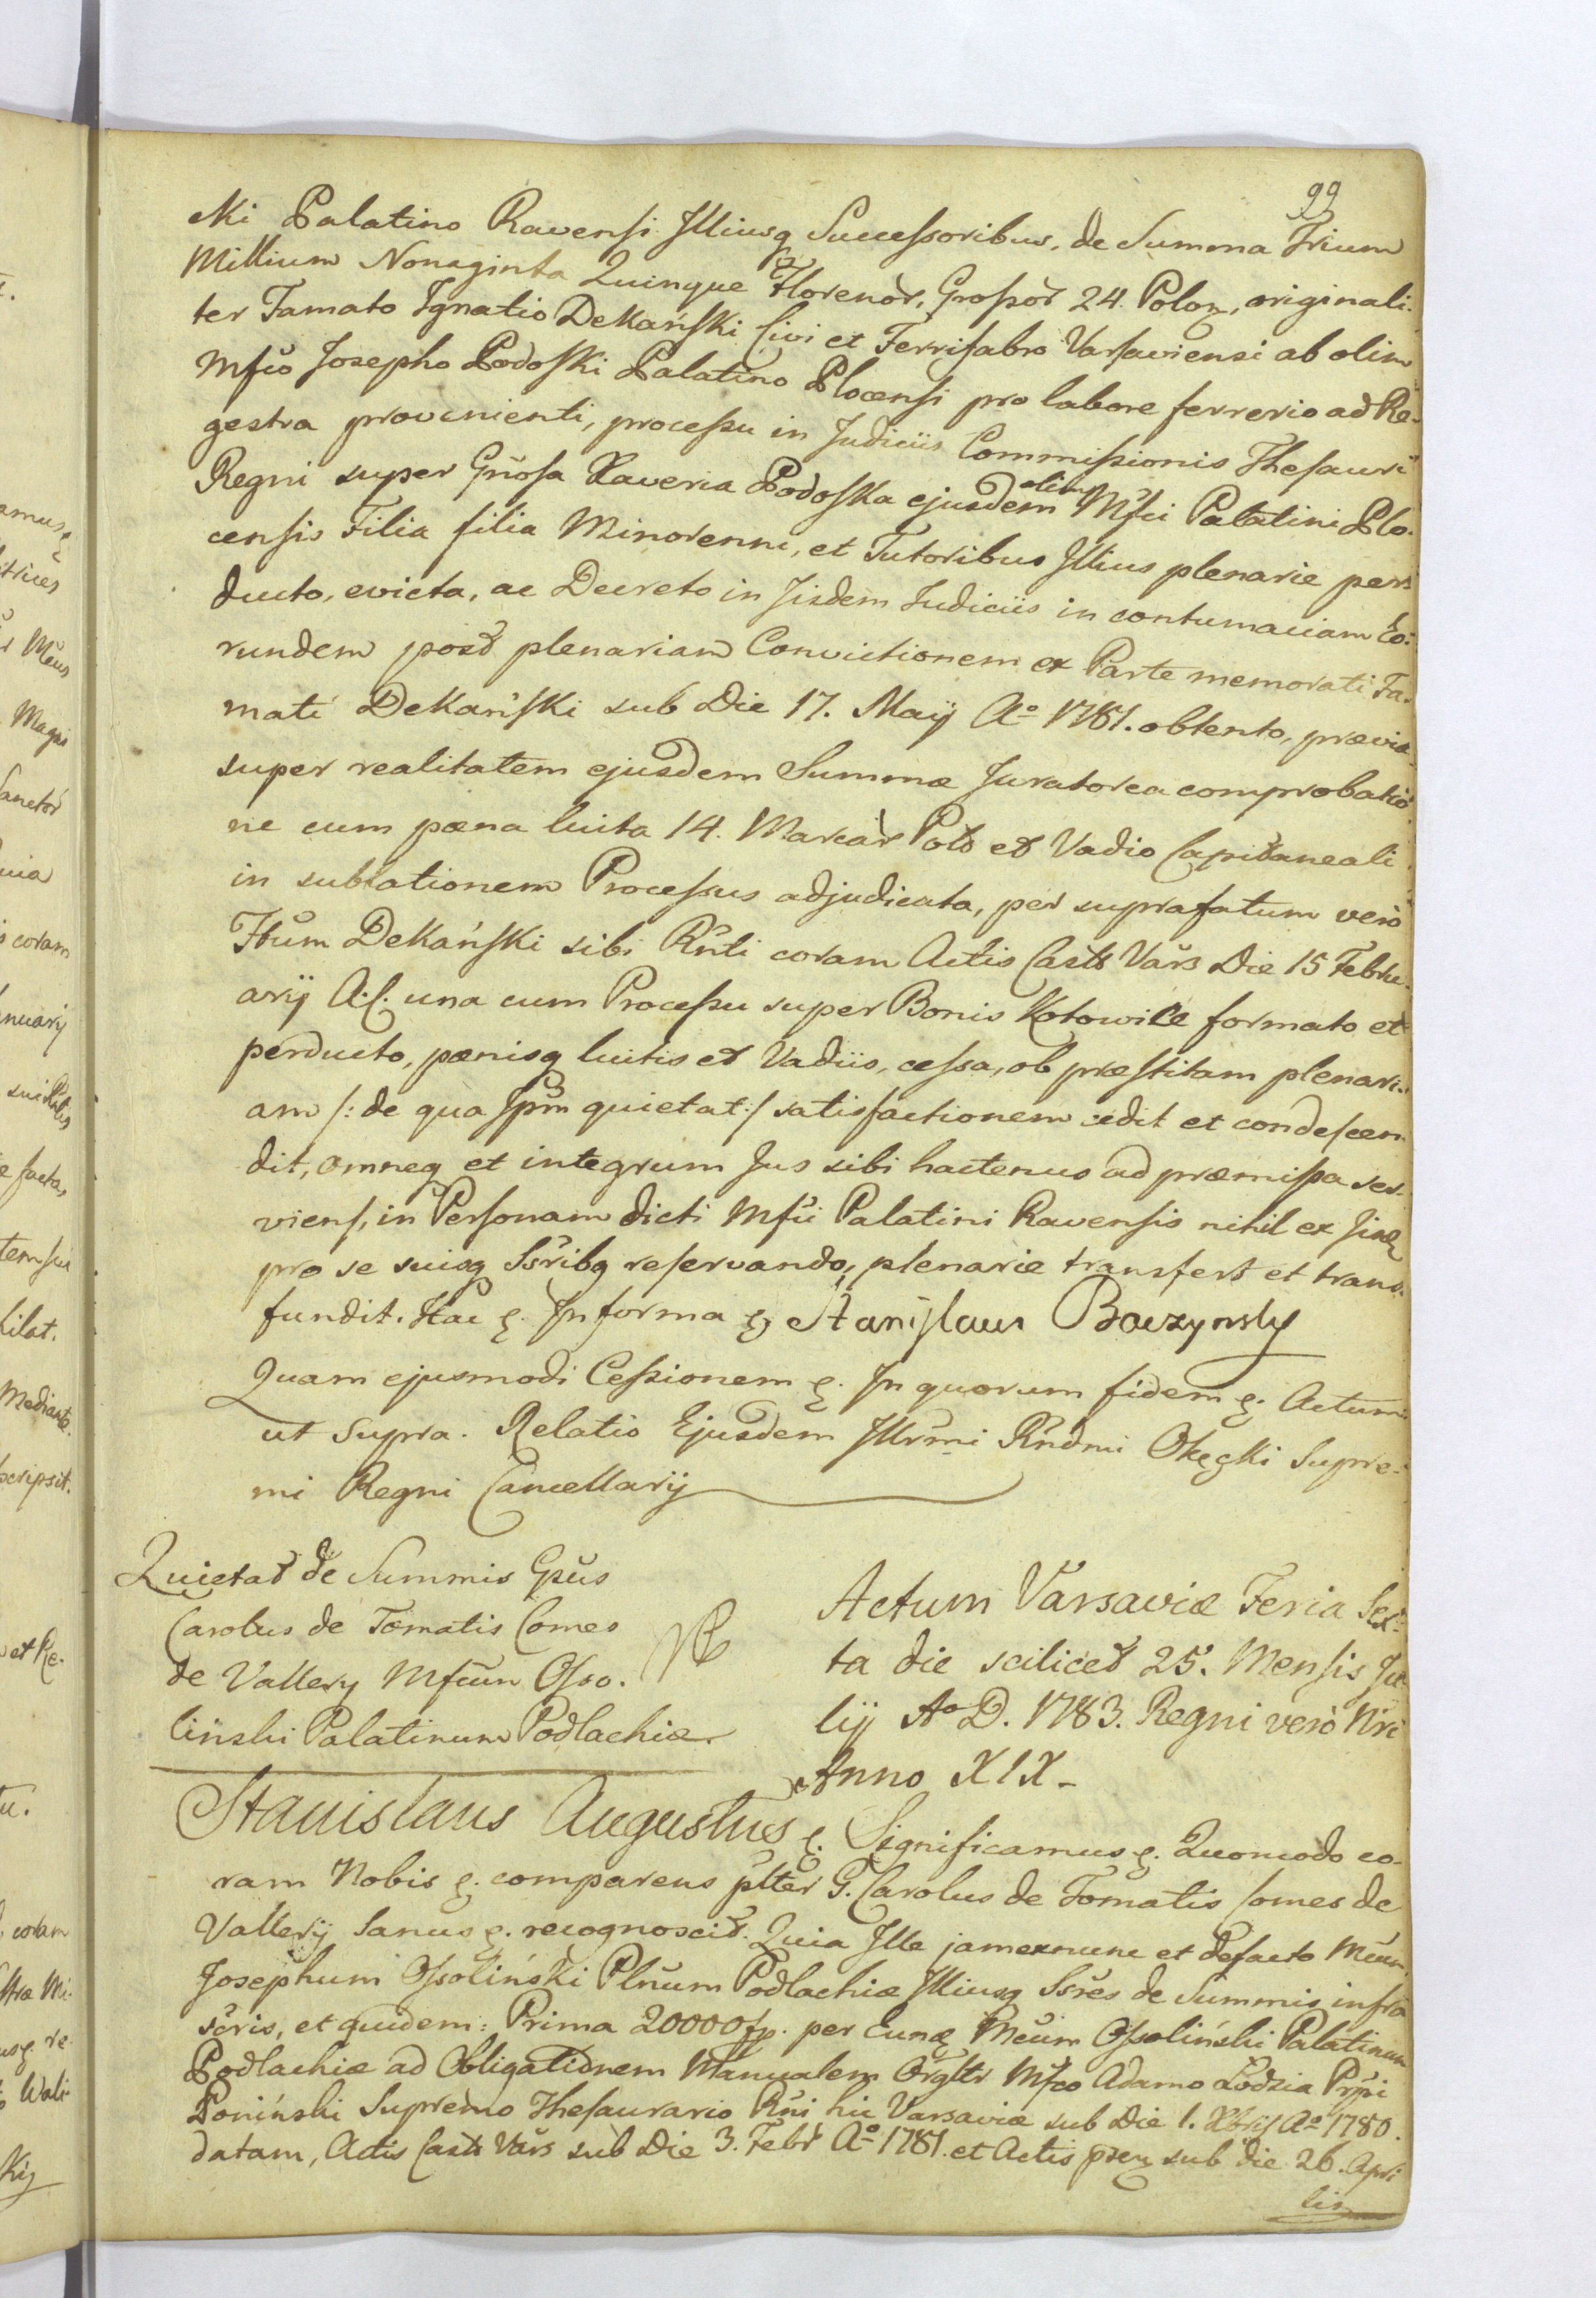 99
ski Palatino Ravensi Illiusq Successoribus, de Summa Trium
Millium Nonaginta Quinque Florenor, Grossor 24. Polon, originali-
ter Famato Ignatio Dekański Civi et Ferrifabro Varsaviensi ab olim
Mfco Josepho Podoski Palatino Plocensi pro labore ferrerio ad Re-
gestra provenienti, processu in Judiciis Commissionis Thesauri
Regni super Gnosa Xaveria Podoska ejusdem olim Mfci Palatini Plo-
censis Filia filia Minorenni, et Tutoribus Illius plenarie per
ducto, evicta, ac Decreto in Iisdem Judiciis in contumaciam Eo-
rundem post plenariam Convictionem ex Parte memorati Fa-
mati Dekański sub Die 17. Maij Ao 1781. obtento, prævia
super realitatem ejusdem Summæ Juratorea comprobatio
ne cum pæna luita 14. Marcar Pol et Vadio Capitaneali
in sublationem Processus adjudicata, per suprafatum vero
Ftum Dekański sibi Rnti coram Actis Castr Vars Die 15 Febru-
arij A. C. una cum Processu super Bonis Kotowice formato et
perducto, pænisq luitis et Vadiis, cessa, ob præstitam plenari-
am /: de qua Ipm quietat :/ satisfactionem cedit et condescen
dit, omneq et integrum Jus sibi hactenus ad præmissa ser-
viens, in Personam dicti Mfci Palatini Ravensis nihil ex Iisd
pro se suisq Ssribq reservando, plenarie transfert et trans-
fundit. Hac &. In forma & Stanislaus Baczynsky
Quam ejusmodi Cessionem &. In quorum fidem &. Actum
ut supra. Relatio Ejusdem Illrmi Rndmi Okęcki Supre-
mi Regni Cancellarij
Quietat de Summis Gsus
Carolus de Tomatis Comes
de Vallery Mfcum Osso-
liński Palatinum Podlachiæ.
Actum Varsaviæ Feria Sex-
ta die scilicet 25. Mensis Ju-
lij Ao D. 1783. Regni vero Nri
Anno XIX.
Stanislaus Augustus &. Significamus &. Quomodo co-
ram Nobis &. comparens plter G. Carolus de Tomatis Comes de
Vallerij Sanus &. recognoscit. Quia Ille jam ex nunc et defacto Mcum
Josephum Ossoliński Plnum Podlachiæ Illiusq Ssres de Summis infra
scris, et quidem: Prima 20000 fp. per Eund Mcum Ossoliński Palatinum
Podlachiæ ad Obligationem Manualem Orgltr Mfco Adamo Łodzia Prpi
Poniński Supremo Thesaurario Rni hic Varsaviæ sub Die 1. Xbris Ao 1780.
datam, Actis Castr Vars sub Die 3. Febr Ao 1781. et Actis psen sub die 26. Apri
lis